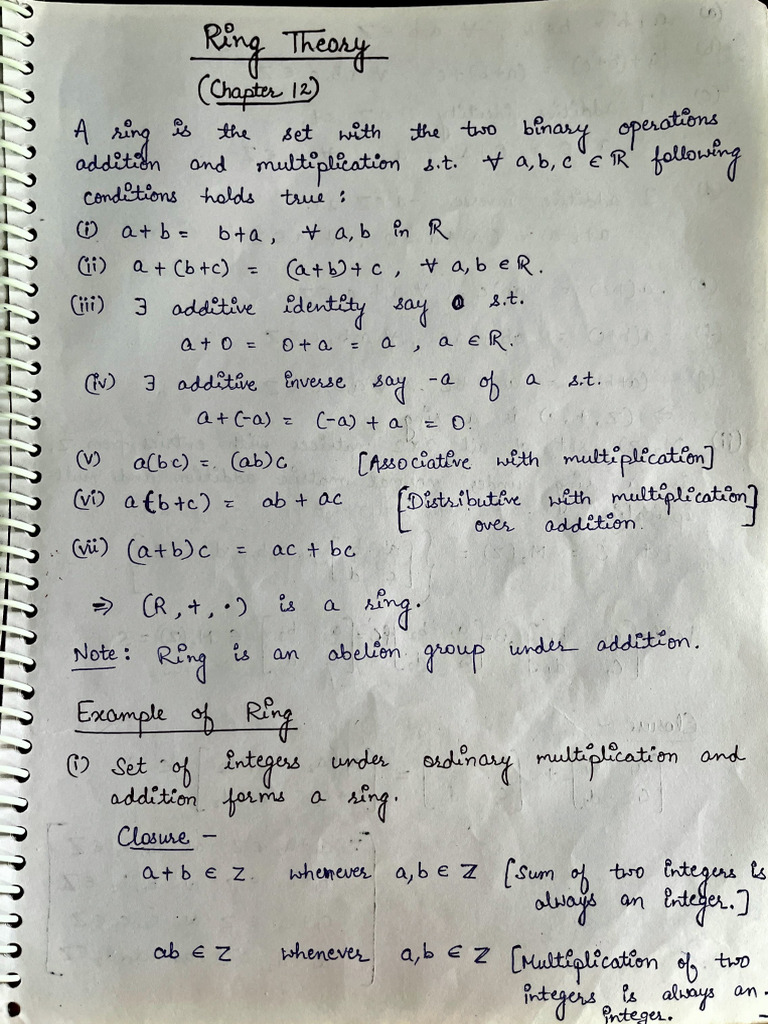 Ring Theory
(Chapter 12)
A ring is the set with the two binary operations
addition and multiplication s.t. ∀ a,b,c ∈ ℝ following
conditions holds true :
(i) a+b = b+a, ∀ a,b in ℝ
(ii) a+(b+c) = (a+b)+c, ∀ a,b ∈ ℝ.
(iii) ∃ additive identity say 0 s.t.
a+0 = 0+a = a , a ∈ ℝ.
(iv) ∃ additive inverse say -a of a s.t.
a+(-a) = (-a)+a = 0.
(v) a(bc) = (ab)c [Associative with multiplication]
(vi) a(b+c) = ab + ac [Distributive with multiplication
over addition.]
(vii) (a+b)c = ac + bc
⇒ (R, +, ·) is a ring.
Note: Ring is an abelion group under addition.
Example of Ring
(i) Set of integers under ordinary multiplication and
addition forms a ring.
Closure -
a+b ∈ Z whenever a,b ∈ Z [Sum of two integers is
always an integer.]
ab ∈ Z whenever a,b ∈ Z [Multiplication of two
integers is always an
integer.